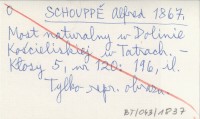 SCHOUPPÉ Alfred 1867.
Most naturalny w Dolinie
Kościeliskiej w Tatrach. —
Kłosy 5, nr 120: 196, il.
Tylko repr. obrazu.
BT/048/1837